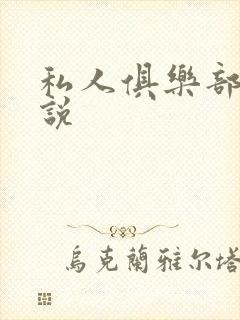 私人俱樂部
説
烏克蘭雅尔塔